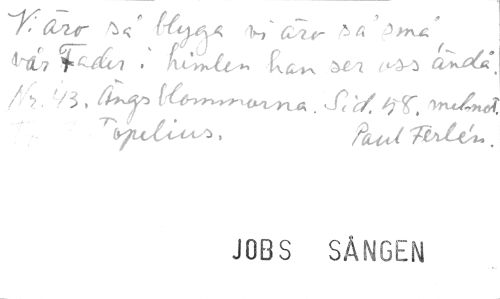 Vi äro så blyga vi äro så små
vår Fader i himlen han ser oss ändå.
Nr. 43. Ängsblommorna. Sid. 58. mel. not.
Topelius. Paul Ferlén.
JOBS SÅNGEN